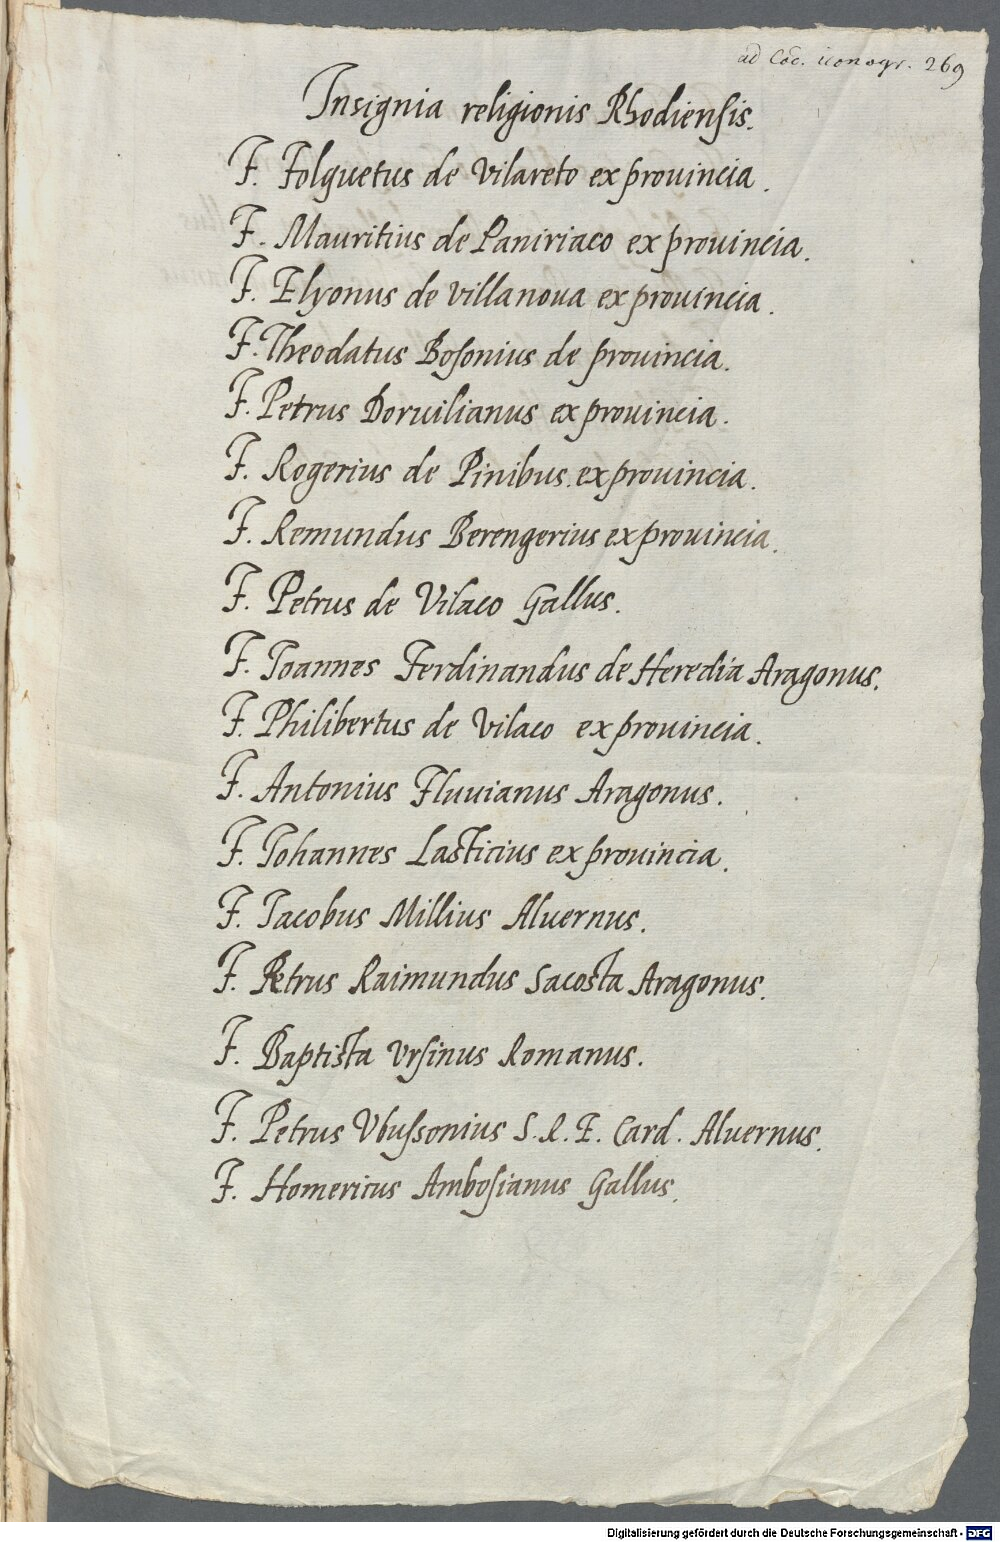 ad Cod. iconogr. 269
Insignia religionis Rhodiensis.
F. Folquetus de Vilareto ex prouincia.
F. Mauritius de Paniriaco ex prouincia.
F. Elyonus de villanoua ex prouincia.
F. Theodatus Bosonius de prouincia.
F. Petrus Doruilianus ex prouincia.
F. Rogerius de Pinibus. ex prouincia.
F. Remundus Berengerius ex prouincia.
F. Petrus de Vilaco Gallus.
F. Ioannes Ferdinandus de Heredia Aragonus.
F. Philibertus de Vilaco ex prouincia.
F. Antonius Fluuianus Aragonus.
F. Iohannes Lasticius ex prouincia.
F. Iacobus Millius Aluernus.
F. Petrus Raimundus Sacosta Aragonus.
F. Baptista Vrsinus Romanus.
F. Petrus Vbussonius S.R.E. Card. Aluernus.
F. Homericus Ambosianus Gallus.
Digitalisierung gefördert durch die Deutsche Forschungsgemeinschaft - DFG